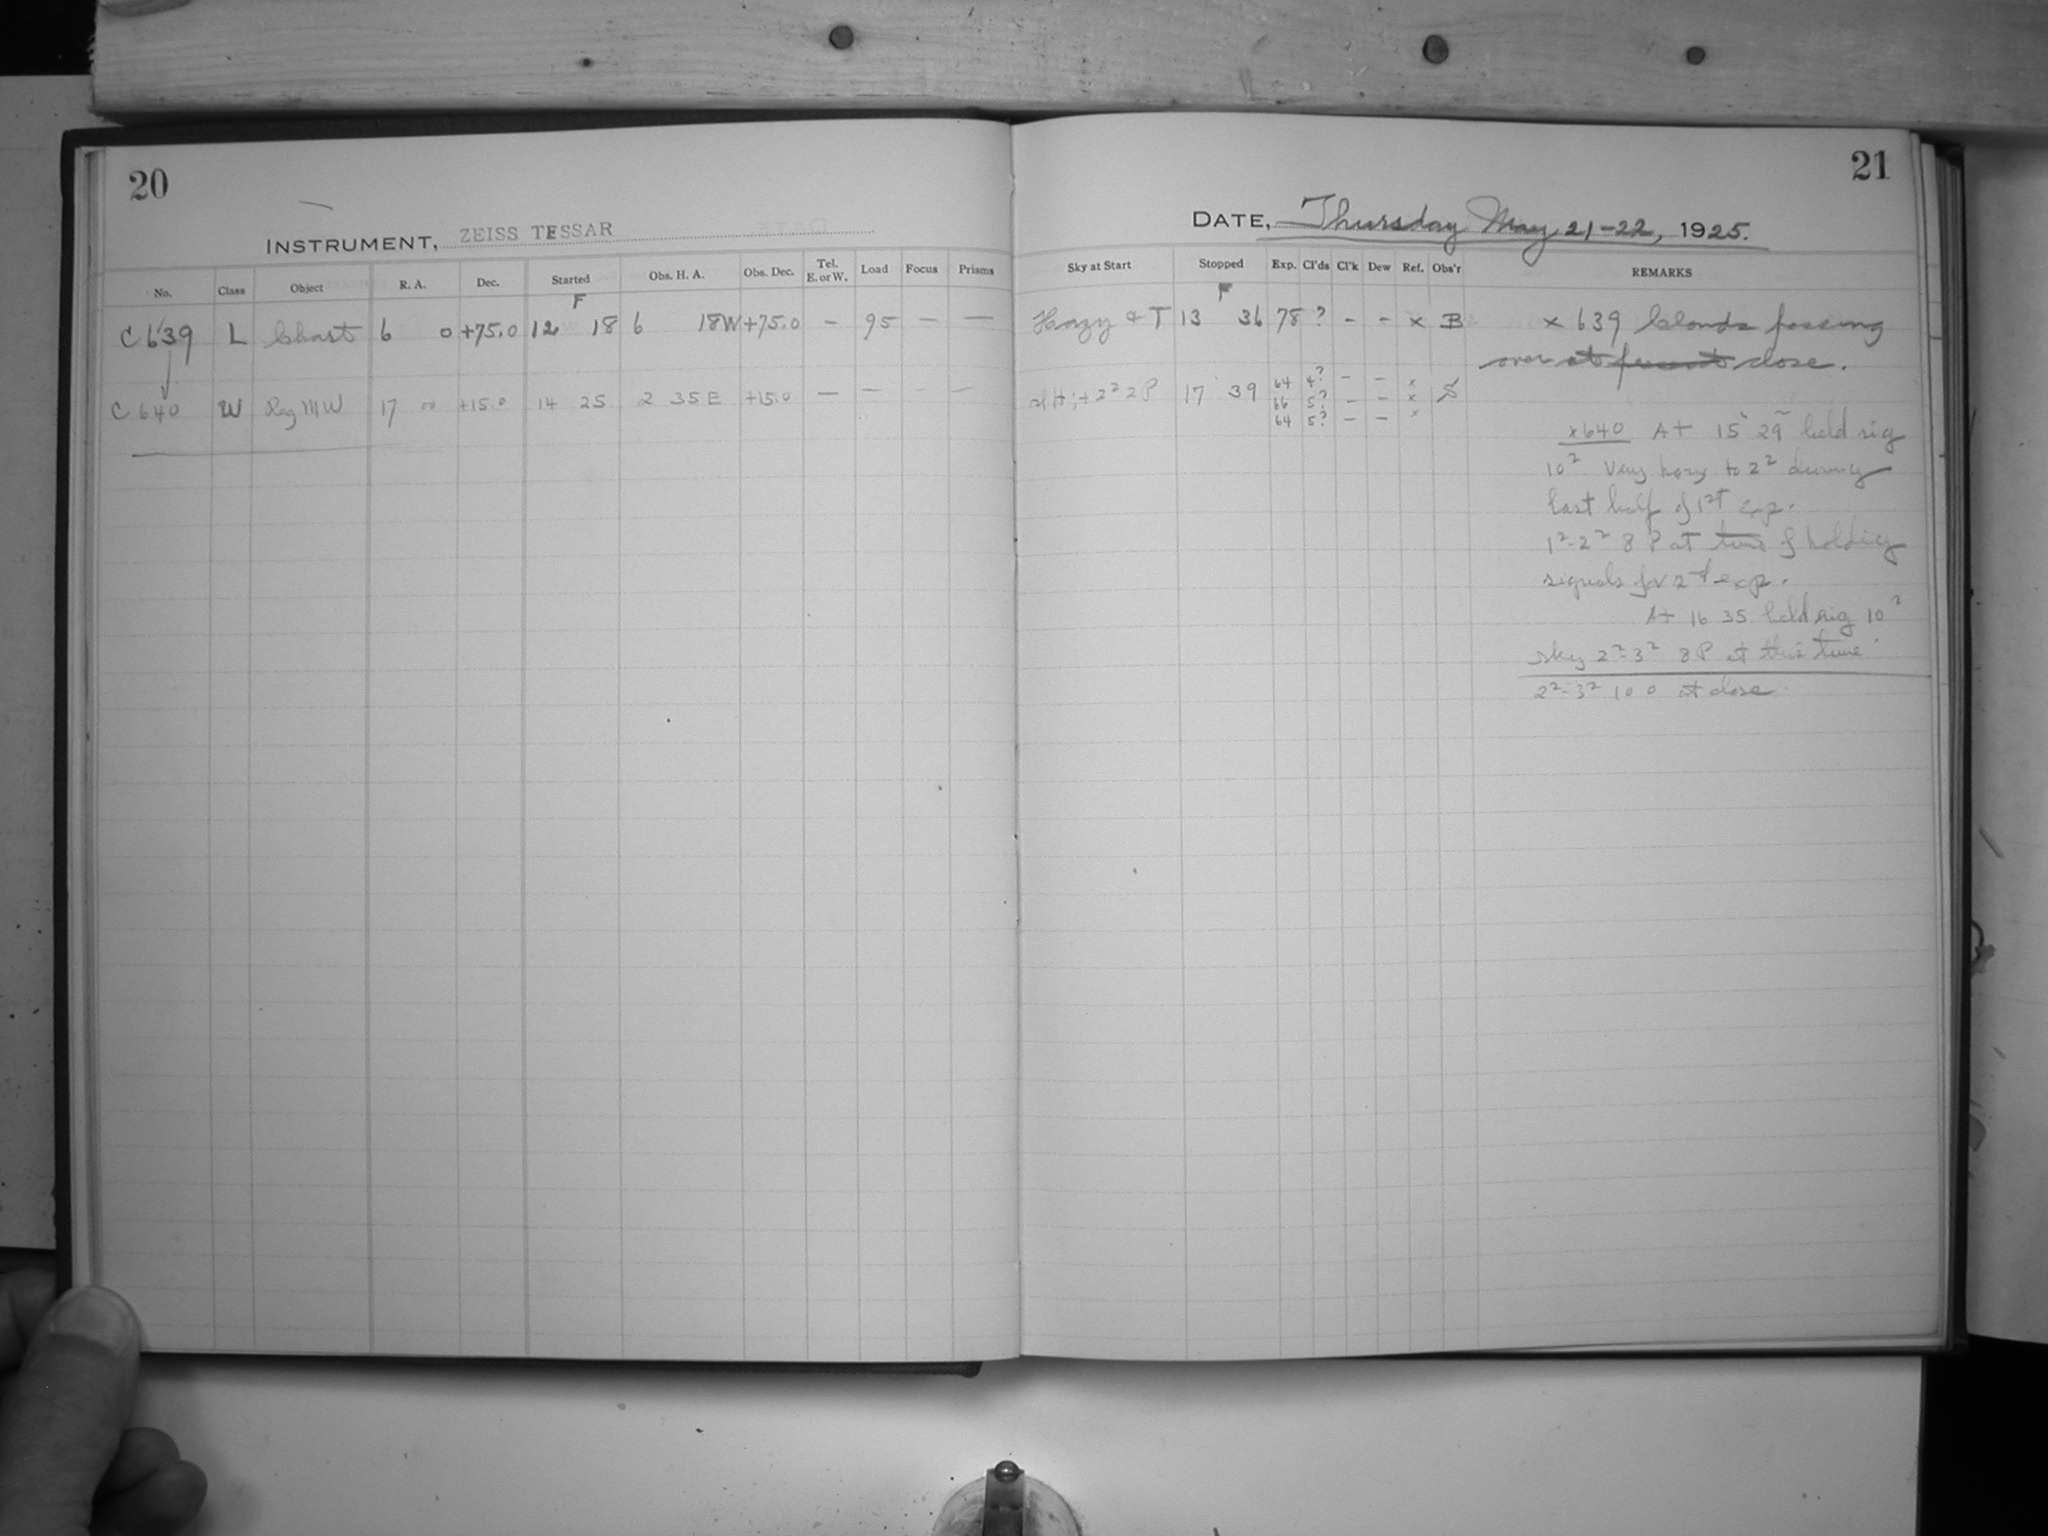 20
INSTRUMENT, ZEISS TESSAR
No. Class Object R. A. Dec. Started Obs. H. A. Obs. Dec. Tel. E. or W. Load Focus Prisms
F
C 639 L Chart 6 0 +75.0 12 18 6 18W +75.0 – 95 – –
C 640 W Reg MW 17 00 +15.0 14 25 2 35 E +15.0 – – –
21
DATE, Thursday May 21-22, 1925.
Sky at Start Stopped Exp. Cl'ds Cl'k Dew Ref. Obs'r REMARKS
F
Hazy & T 13 36 78 ? - - x B
2² 2 P 17 39 S
64 4? - - x
66 5? - - x
64 5? - - x
x 639 Clouds passing
over at close.
x640 At 15 29 held sig
10² Very hazy to 2² during
last half of 1st exp.
1²-2² 8 P at time of holding
signals for 2nd exp.
At 16 35 held sig 10²
sky 2²-3² 8 P at this time.
2²-3² 10 0 at close.